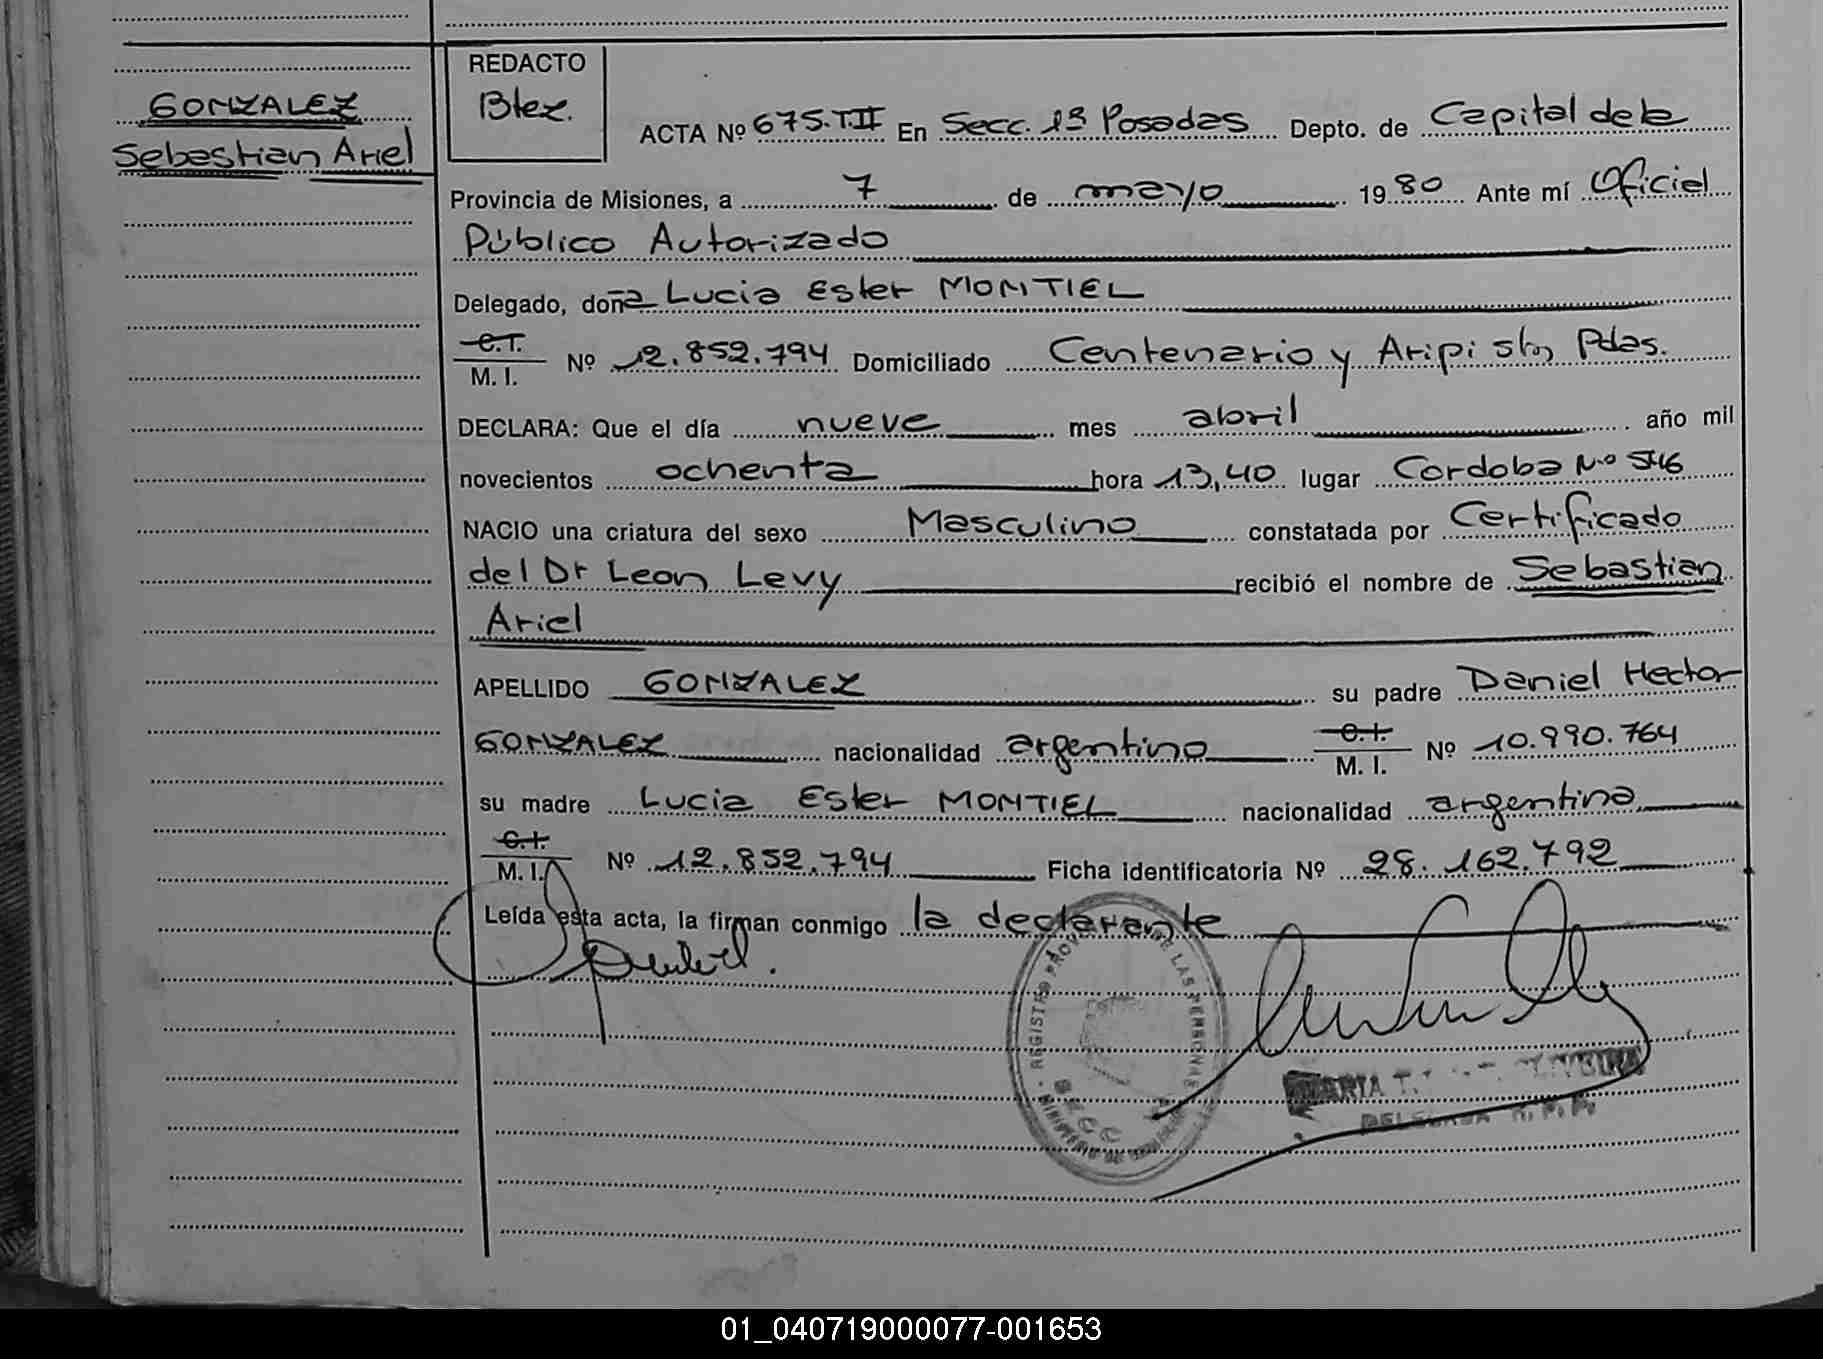 GONZALEZ
Sebastian Ariel
REDACTO
Btez.
ACTA Nº 675.T.II En Secc. 1ª Posadas Depto. de Capital de la
Provincia de Misiones, a 7 de mayo 1980 Ante mí Oficial
Público Autorizado
Delegado, doña Lucia Ester MONTIEL
C.I.
M. I. Nº 12.852.794 Domiciliado Centenario y Aripi s/n Pdas.
DECLARA: Que el día nueve mes abril año mil
novecientos ochenta hora 13,40 lugar Cordoba Nº 546
NACIO una criatura del sexo Masculino constatada por Certificado
del Dr Leon Levy recibió el nombre de Sebastian
Ariel
APELLIDO GONZALEZ su padre Daniel Hector
GONZALEZ nacionalidad argentino C.I.
M. I. Nº 10.990.764
su madre Lucia Ester MONTIEL nacionalidad argentina
C.I.
M. I. Nº 12.852.794 Ficha identificatoria Nº 28.162.792
Leída esta acta, la firman conmigo la declarante
REGISTRO PROV. DE LAS PERSONAS
SECC
MARIA T. OLIVEIRA
DELEGADA R. P. P.
01_040719000077-001653